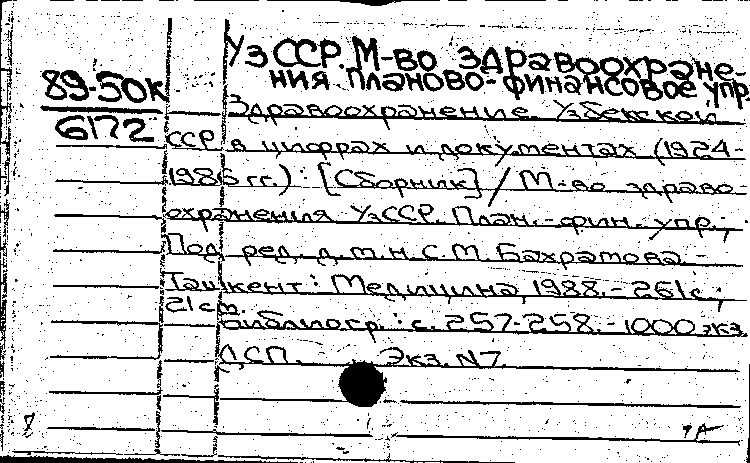 УзССР. М-во здравоохране-
ния. Планово-финансовое упр.
89-50к
6172
Здравоохранение Узбекской
ССР в цифрах и документах (1924-
1986 гг.) : [Сборник] / М-во здраво-
охранения УзССР. План.-фин. упр.;
Под ред. д.м.н. С.М. Бахрамова -
Ташкент : Медицина, 1988. - 261 с.;
21 см.
Библиогр. : с. 257-258. - 1000 экз.
ДСП. Экз. N7